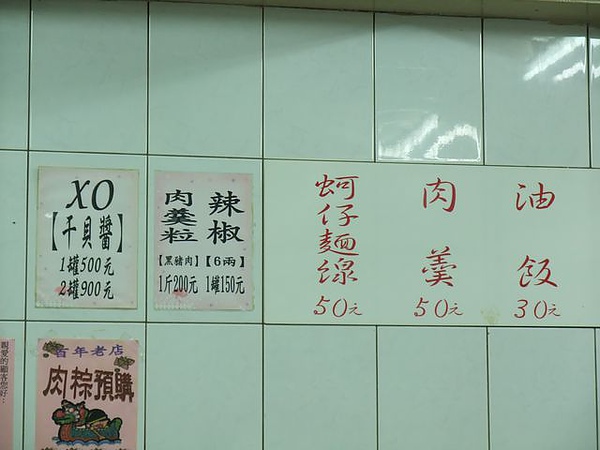 XO
【干貝醬】
1罐500元
2罐900元
肉羹粒
【黑豬肉】
1斤200元
辣椒
【6兩】
1罐150元
蚵仔麵線
50元
肉羹
50元
油飯
30元
親愛的顧客您好：
百年老店
肉粽預購